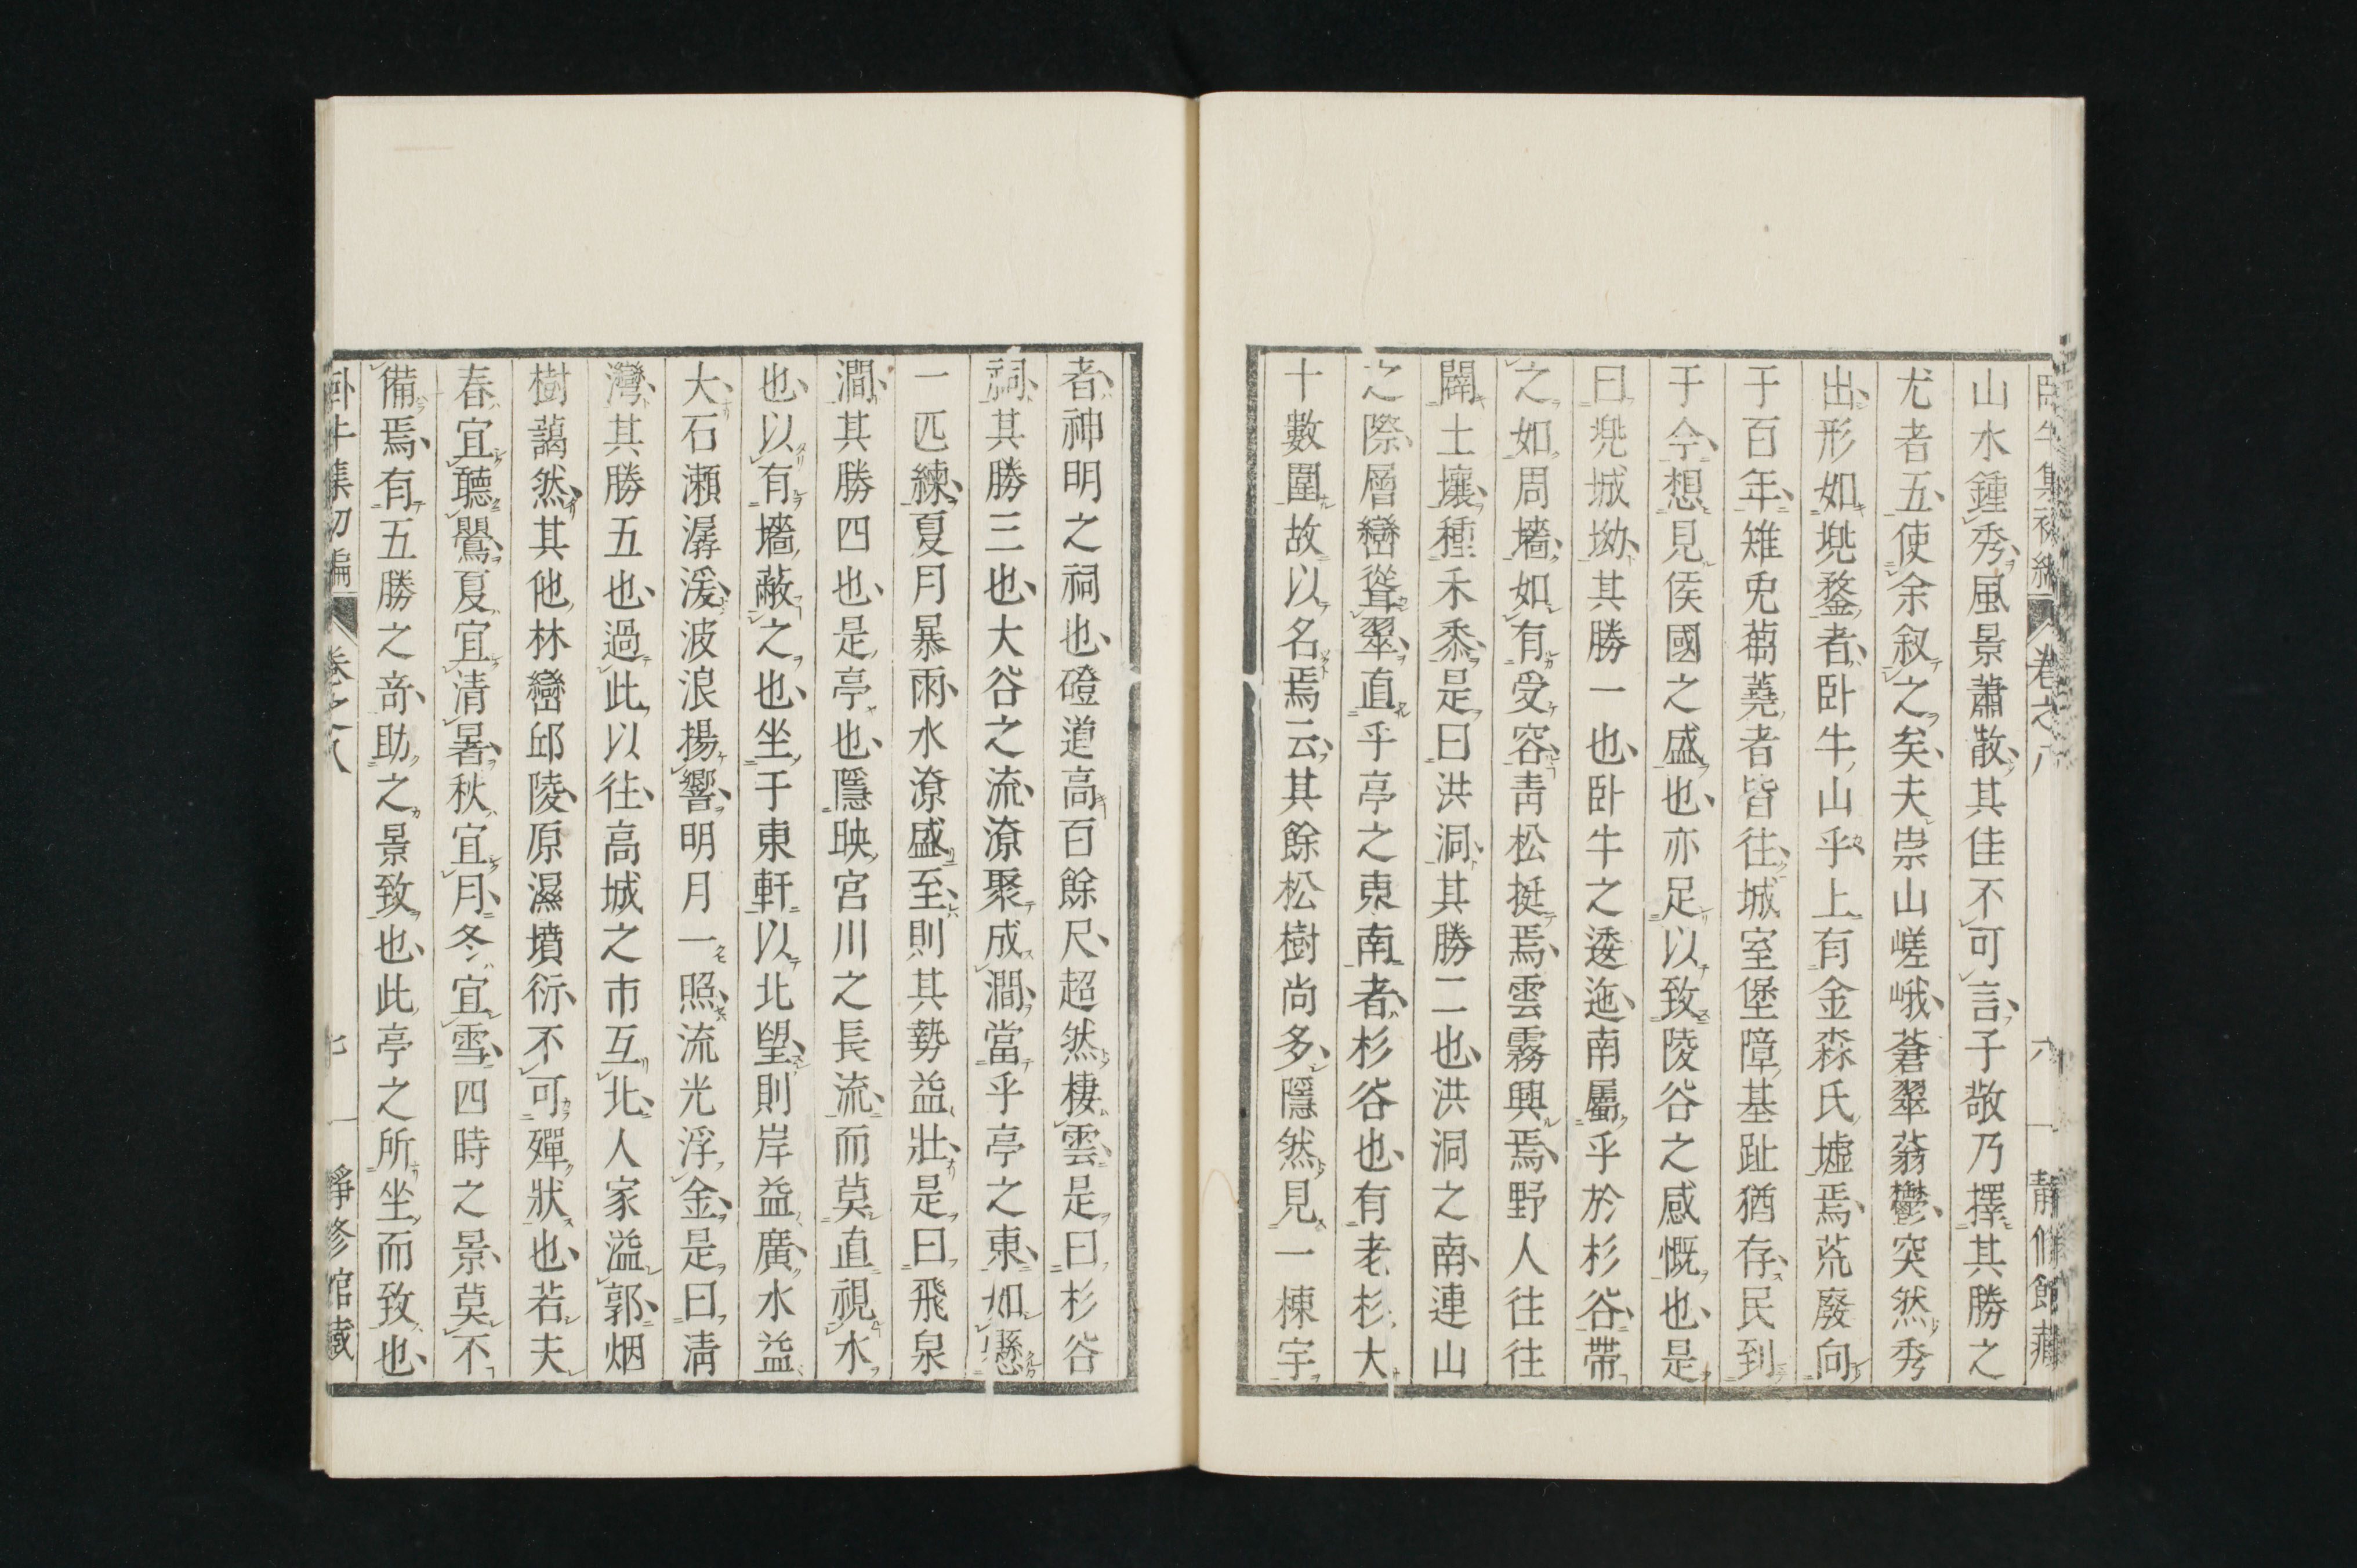 卧牛集初編 卷之八 六 靜修館藏
山水鍾秀、風景蕭散、其佳不可言、子敬乃擇其勝之
尤者五、使余叙之矣、夫崇山嵯峨、蒼翠蓊鬱、突然秀
出、形如兠鍪者、卧牛山乎、上有金森氏墟焉、荒廢向
于百年、雉兎蒭蕘者皆往、城室堡障基趾猶存、民到
于今、想見侯國之盛也、亦足以致陵谷之感慨也、是
曰兠城坳、其勝一也、卧牛之逶迤、南屬乎於杉谷、帶
之如周墻、如有受容、青松挺焉、雲霧興焉、野人往往
闢土壤、種禾黍、是曰洪洞、其勝二也、洪洞之南、連山
之際、層巒聳翠、直乎亭之東南者、杉谷也、有老杉、大
十數圍、故以名焉云、其餘松樹尚多、隱然見一棟宇
者、神明之祠也、磴道高百餘尺、超然棲雲、是曰杉谷
祠、其勝三也、大谷之流、潦聚成澗、當乎亭之東、如懸
一匹練、夏月暴雨、水潦盛至、則其勢益壯、是曰飛泉
澗、其勝四也、是亭也、隱映宮川之長流、而莫直視水
也、以有墻蔽之也、坐于東軒以北望、則岸益廣、水益
大、石瀨潺湲、波浪揚響、明月一照、流光浮金、是曰清
灣、其勝五也、過此以往、高城之市互北、人家溢郭、烟
樹藹然、其他林巒邱陵、原濕墳衍、不可殫狀也、若夫
春宜聽鸎、夏宜清暑、秋宜月、冬宜雪、四時之景、莫不
備焉、有五勝之竒、助之景致也、此亭之所坐而致也、
卧牛集初編 卷之八 七 靜修館藏